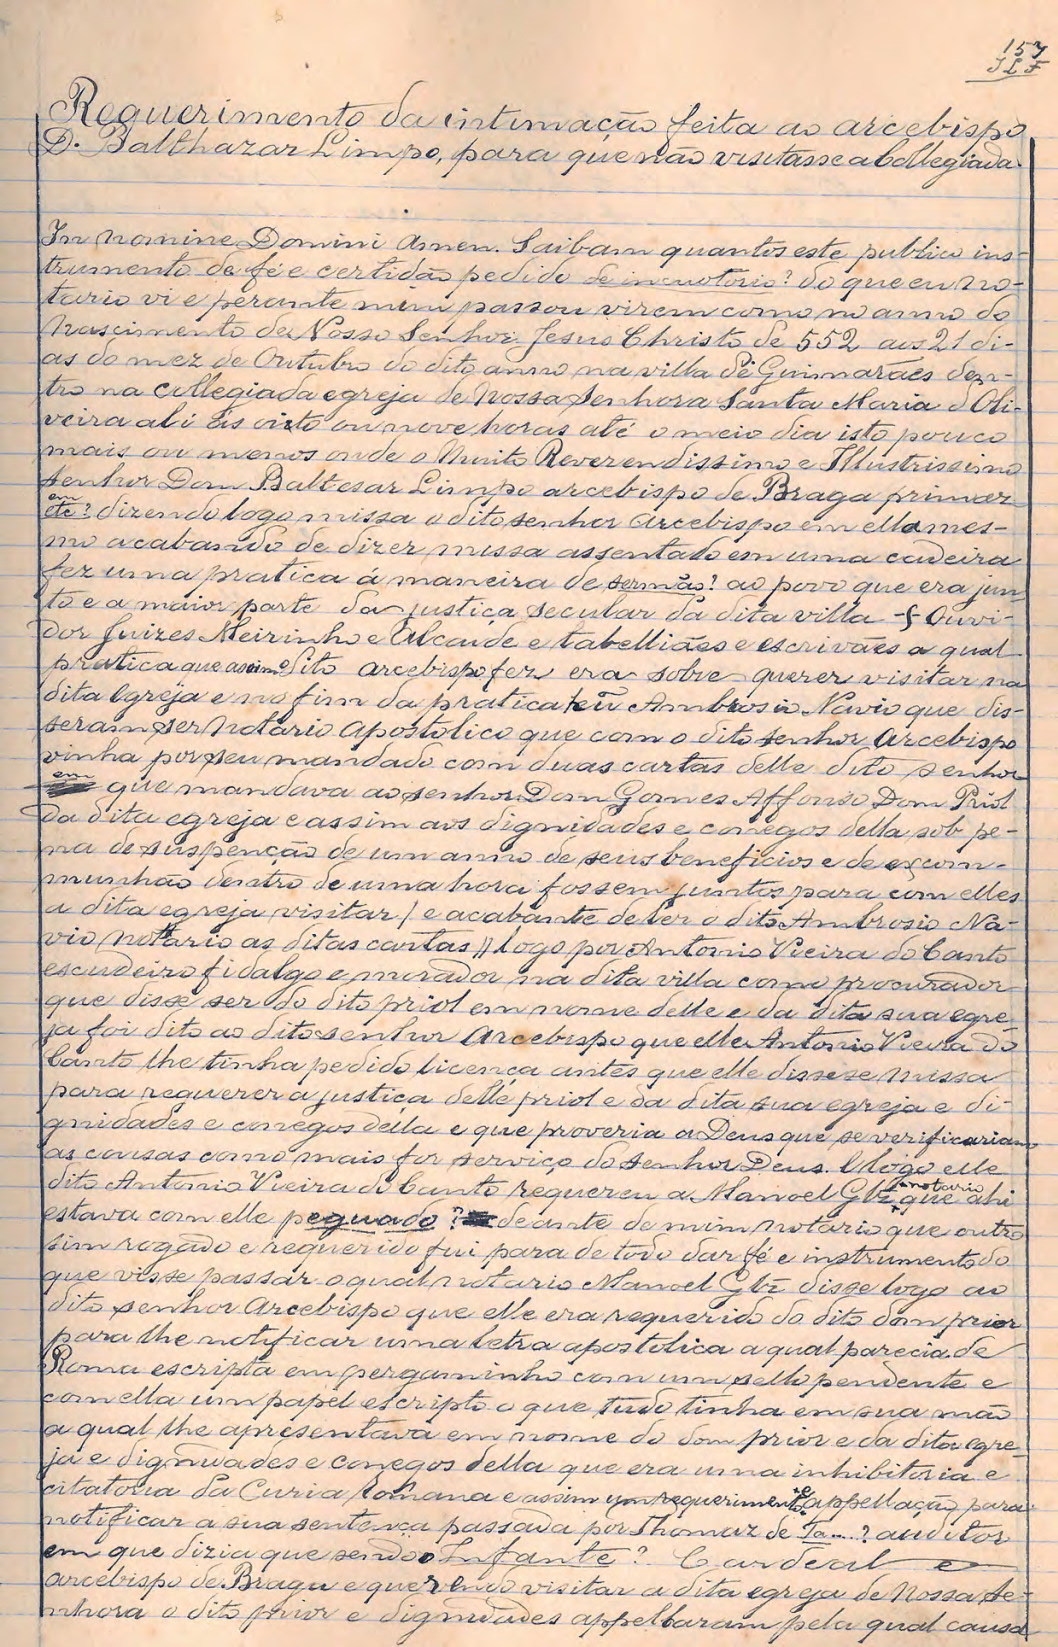 157
J L F
Requerimento da intimação feita ao arcebispo
D. Balthazar Limpo, para que não visitasse a Collegiada.
In nomine Domini Amen. Saibam quantos este publico ins-
trumento de fé e certidão pedido de incuotorio? do que eu no-
tario vi e perante mim passou virem como no anno do
Nascimento de Nosso Senhor Jesus Christo de 552 aos 21 di-
as do mez de Outubro do dito anno na villa de Guimarães den-
tro na collegiada egreja de Nossa Senhora Santa Maria d'Oli-
veira ali ás oito ou nove horas até o meio dia isto pouco
mais ou menos onde o Muito Reverendissimo e Illustrissimo
Senhor Dom Baltesar Limpo arcebispo de Braga primaz
em
etc? dizendo logo missa o dito senhor Arcebispo em ella mes-
mo acabando de dizer missa assentado em uma cadeira
fez uma pratica á maneira de sermão? ao povo que era jun
to e a maior parte da justiça secular da dita villa -§ Ouvi-
dor Juizes Meirinho e Alcaide e tabelliães e escrivães a qual
pratica que assim o dito arcebispo fez era sobre querer visitar na
dita Egreja e no fim da pratica leu Ambrosio Navio que dis-
seram ser Notario Apostolico que com o dito senhor Arcebispo
vinha por seu mandado com duas cartas delle dito senhor
em
que mandava ao senhor Dom Gomes Affonso Dom Priol
da dita egreja e assim aos dignidades e conegos della sob pe-
na de suspenção de um anno de seus beneficios e de excom-
munhão dentro de uma hora fossem juntos para com elles
a dita egreja visitar / e acabante de ler o dito Ambrosio Na-
vio notario as ditas cartas // logo por Antonio Vieira do Canto
escudeiro fidalgo e morador na dita villa como procurador
que disse ser do dito priol em nome delle e da dita sua egre
ja foi dito ao dito senhor Arcebispo que elle Antonio Vieira do
Canto lhe tinha pedido licença antes que elle dissese missa
para requerer a justiça delle priol e da dita sua egreja e di-
gnidades e conegos della e que proveria a Deus que se verificariam
as cousas como mais for serviço do Senhor Deus. E logo elle
dito Antonio Vieira do Canto requereu a Manoel Glz notario que ahi
estava com elle peguado? deante de mim notario que outro
sim rogado e requerido fui para de todo dar fé e instrumento do
que visse passar o qual notario Manoel Glz disse logo ao
dito senhor Arcebispo que elle era requerido do dito dom prior
para lhe notificar uma letra apostolica a qual parecia de
Roma escripta em pergaminho com um sello pendente e
com ella um papel escripto o que tudo tinha em sua mão
a qual lhe apresentava em nome do dom prior e da dita egre-
ja e dignidades e conegos della que era uma inhibitoria e
citatoria da Curia romana e assim um requerimento e appellação para
notificar a sua sentença passada por Thomaz de Ta...? auditor
em que dizia que sendo o Infante? Cardeal e
arcebispo de Braga e querendo visitar a dita egreja de Nossa Se-
nhora o dito prior e dignidades appellaram pela qual causa